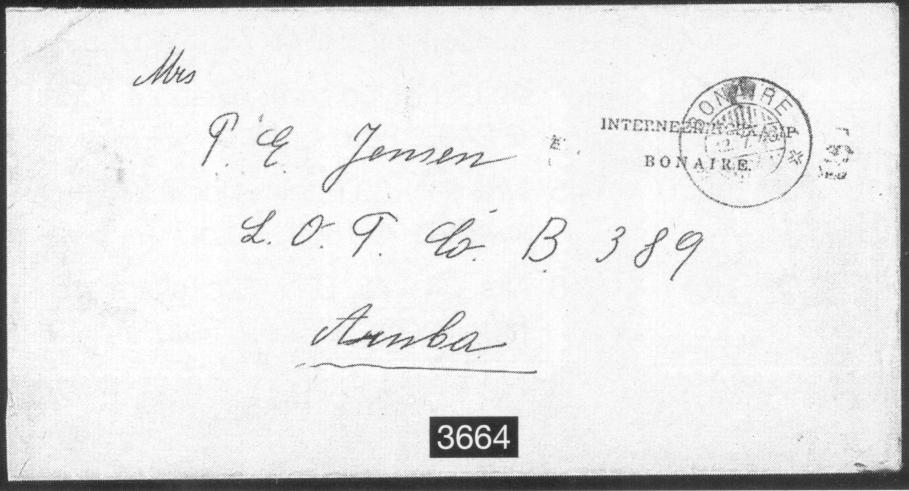 Mrs
P. E. Jensen
L. O. T. Co. B. 389
Aruba
INTERNEERINGSKAMP
BONAIRE.
BONAIRE
3664